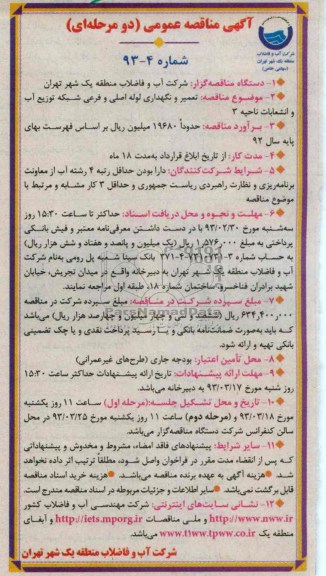 آگهی مناقصه عمومی (دو مرحله‌ای)
شماره ۴-۹۳
شرکت آب و فاضلاب
منطقه یک شهر تهران
(سهامی خاص)
۱- دستگاه مناقصه‌گزار: شرکت آب و فاضلاب منطقه یک شهر تهران
۲- موضوع مناقصه: تعمیر و نگهداری لوله اصلی و فرعی شبکه توزیع آب
و انشعابات ناحیه ۳
۳- برآورد مناقصه: حدوداً ۱۹۶۸۰ میلیون ریال بر اساس فهرست بهای
پایه سال ۹۲
۴- مدت کار: از تاریخ ابلاغ قرارداد به‌مدت ۱۸ ماه
۵- شرایط شرکت‌کنندگان: دارا بودن حداقل رتبه ۴ رشته آب از معاونت
برنامه‌ریزی و نظارت راهبردی ریاست جمهوری و حداقل ۳ کار مشابه و مرتبط با
موضوع مناقصه
۶- مهلت و نحوه و محل دریافت اسناد: حداکثر تا ساعت ۱۵:۳۰ روز
سه‌شنبه مورخ ۹۳/۰۲/۳۰ با در دست داشتن معرفی‌نامه معتبر و فیش بانکی
پرداختی به مبلغ ۱,۵۷۶,۰۰۰ ریال (یک میلیون و پانصد و هفتاد و شش هزار ریال)
به حساب شماره بانک سینا شعبه پل رومی به‌نام شرکت
آب و فاضلاب منطقه یک شهر تهران به دبیرخانه واقع در میدان تجریش، خیابان
شهید برادران فناخسرو، ساختمان شماره ۱۸، طبقه اول مراجعه نمایند.
۷- مبلغ سپرده شرکت در مناقصه: مبلغ سپرده شرکت در مناقصه
۶۳۴,۴۰۰,۰۰۰ ریال (ششصد و سی و چهار میلیون و چهارصد هزار ریال) می‌باشد
که باید به‌صورت ضمانت‌نامه بانکی و یا رسید پرداخت نقدی و یا چک تضمینی
بانکی تهیه و ارائه شود.
۸- محل تأمین اعتبار: بودجه جاری (طرح‌های غیرعمرانی)
۹- مهلت ارائه پیشنهادات: تاریخ ارائه پیشنهادات حداکثر ساعت ۱۵:۳۰
روز شنبه مورخ ۹۳/۰۳/۱۷ به دبیرخانه می‌باشد.
۱۰- تاریخ و محل تشکیل جلسه: (مرحله اول) ساعت ۱۱ روز یکشنبه
مورخ ۹۳/۰۳/۱۸ و (مرحله دوم) ساعت ۱۱ روز یکشنبه مورخ ۹۳/۰۳/۲۵ در محل
سالن کنفرانس شرکت دستگاه مناقصه‌گزار می‌باشد.
۱۱- سایر شرایط: پیشنهادهای فاقد امضاء، مشروط و مخدوش و پیشنهاداتی
که پس از انقضاء مدت مقرر در فراخوان واصل شود، مطلقاً ترتیب اثر داده نخواهد
شد. هزینه آگهی به عهده برنده مناقصه می‌باشد. هزینه خرید اسناد مناقصه
قابل برگشت نمی‌باشد. سایر اطلاعات و جزئیات مربوطه در اسناد مناقصه مندرج است.
۱۲- نشانی سایت‌های اینترنتی: شرکت مهندسی آب و فاضلاب کشور
http://www.nww.ir و ملی مناقصات http://iets.mporg.ir و آبفای
منطقه یک www.t1ww.tpww.co.ir می‌باشد.
شرکت آب و فاضلاب منطقه یک شهر تهران